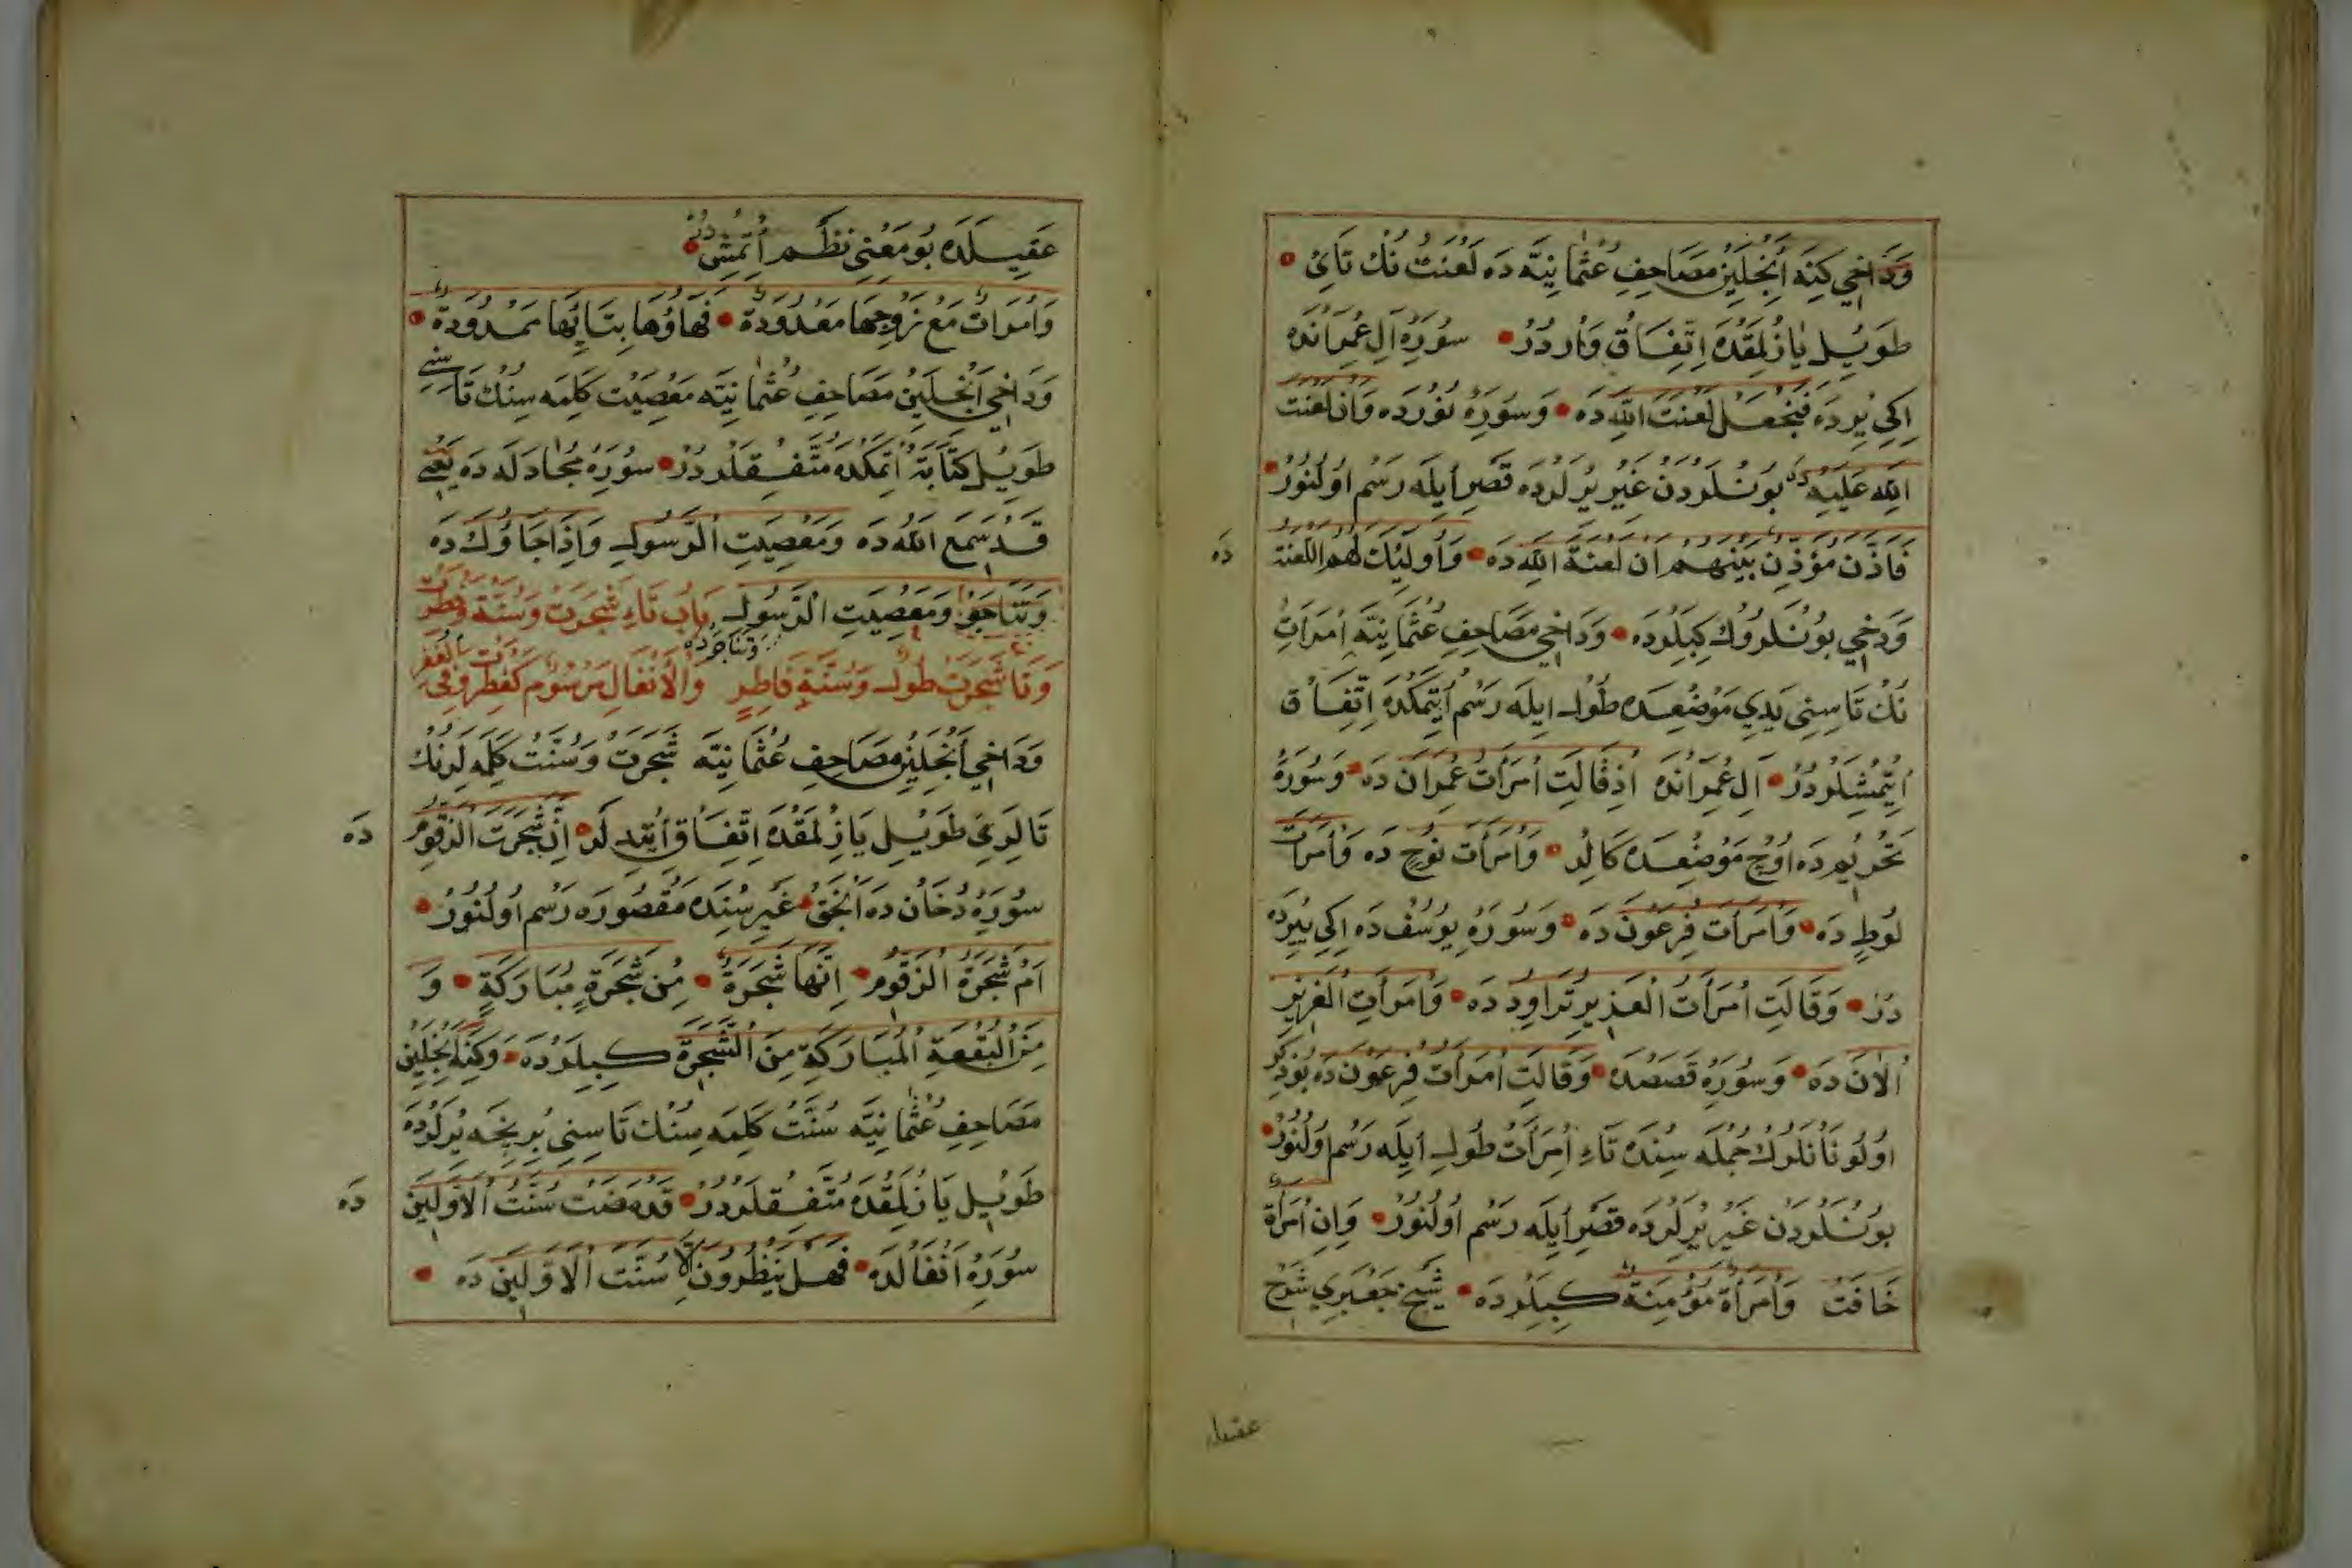 وَدَاخِي كِنَه أَنْجِلَيِنْ مَصَاحِفِ عُثْمَانِيَّه دَه لَعْنَتْ نُكْ تَائِ
طَوِيلِ يَازُلْمَقْدَه اِتِّفَاقْ وَارْدُرْ سُورَۀِ آلِ عِمْرَانْدَه
اِكِي يِرْدَه فَنَجْعَلْ لَعْنَتَ اللهِ دَه وَسُورَۀِ نُورْدَه وَاَنَّ لَعْنَتَ
اللهِ عَلَيْهِ دَه بُونْلَرْدَنْ غَيْرِ يِرْلَرْدَه قَصْرِ اَيلَه رَسْم اُولُنُورْ
فَاَذَّنَ مُؤَذِّنٌ بَيْنَهُمْ اَنْ لَعْنَةُ اللهِ دَه وَاُولَئِكَ لَهُمُ اللَّعْنَةُ دَه
وَدَخِي بُونْلَرُوكْ كِبِيلَرْدَه وَدَاخِي مَصَاحِفِ عُثْمَانِيَّه اِمْرَاَتْ
نُكْ تَاسِنِي يَدِي مَوْضِعْدَه طُولِ اِيلَه رَسْم اِيتْمَكْدَه اِتِّفَاقْ
اِيتْمِشْلَرْدُرْ آلِ عِمْرَانْدَه اِذْ قَالَتِ امْرَاَتُ عِمْرَانَ دَه وَسُورَۀِ
تَحْرِيمْدَه اُوچْ مَوْضِعْدَه كَالِدْ وَامْرَاَتَ نُوحٍ دَه وَامْرَاَتَ
لُوطٍ دَه وَامْرَاَتَ فِرْعَوْنَ دَه وَسُورَۀِ يُوسُفْ دَه اِكِي يِيرْدَه
دُرْ وَقَالَتِ امْرَاَتُ الْعَزِيزِ تُرَاوِدُ دَه وَامْرَاَتِ الْعَزِيزِ
اْلآنَ دَه وَسُورَۀِ قَصَصْدَه وَقَالَتِ امْرَاَتُ فِرْعَوْنَ دَه بُو ذِكْرِ
اُولُونَانْلَرُكْ جُمْلَه سِنْدَه تَاءِ اِمْرَاَتْ طُولِ اِيلَه رَسْم اُولُنُورْ
بُونْلَرْدَنْ غَيْرِ يِرْلَرْدَه قَصْرِ اَيلَه رَسْم اُولُنُورْ وَاِنِ امْرَاَةٌ
خَافَتْ وَامْرَاَةً مُؤْمِنَةً كِبِيلَرْدَه شَيْخْ جَعْبَرِي شَرْحِ
عَقِيلَه دَه بُو مَعْنِي نَظْم اِتْمِشْدُرْ
وَامْرَاَتْ مَعْ زَوْجِهَا مَعْدُودَةٌ فَهَاؤُهَا بِتَائِهَا مَمْدُودَةٌ
وَدَاخِي اَنْجِلَيِنْ مَصَاحِفِ عُثْمَانِيَّه مَعْصِيَتْ كَلِمَه سِنُكْ تَاسِنِي
طَوِيلِ كِتَابَةْ اِتْمَكْدَه مُتَّفِقْلَرْدُرْ سُورَۀِ مُجَادَلَه دَه يَعْنِي
قَدْ سَمِعَ اللهُ دَه وَمَعْصِيَتِ الرَّسُولِ وَاِذَا جَاؤُكَ دَه
وَتَنَاجَوْا وَمَعْصِيَتِ الرَّسُولِ بَابُ تَاءِ شَجَرَتْ وَسُنَّة فَطَرَتْ
وَتَنَاجَوْ دَه
وَتَا شَجَرَتْ طُولِ وَسُنَّةِ فَاطِرٍ وَالْاَنْفَالِ مَرْسُوم
وَدَاخِي اَنْجِلَيِنْ مَصَاحِفِ عُثْمَانِيَّه شَجَرَتْ وَسُنَّتْ كَلِمَه لَرِنُكْ
تَالَرِي طَوِيلِ يَازِلْمَقْدَه اِتِّفَاقْ اِتْدِلَرْ اِنَّ شَجَرَتَ الزَّقُّومِ دَه
سُورَۀِ دُخَانْ دَه اَنْجَقْ غَيْرِ سِنْدَه مَقْصُورَه رَسْم اُولُنُورْ
اَمْ شَجَرَةُ الزَّقُّومِ اِنَّهَا شَجَرَةٌ مِنْ شَجَرَةٍ مُبَارَكَةٍ وَ
مِنَ الْبُقْعَةِ الْمُبَارَكَةِ مِنَ الشَّجَرَةِ كِبِيلَرْدَه وَكِنَه اَنْجِلَيِنْ
مَصَاحِفِ عُثْمَانِيَّه سُنَّتْ كَلِمَه سِنُكْ تَاسِنِي بُرِنْجَه يِرْلَرْدَه
طَوِيلِ يَازُلْمَقْدَه مُتَّفِقْلَرْدُرْ قَدْ مَضَتْ سُنَّتُ الْاَوَّلِينَ دَه
سُورَۀِ اَنْفَالْدَه فَهَلْ يَنْظُرُونَ اِلَّا سُنَّتَ الْاَوَّلِينَ دَه